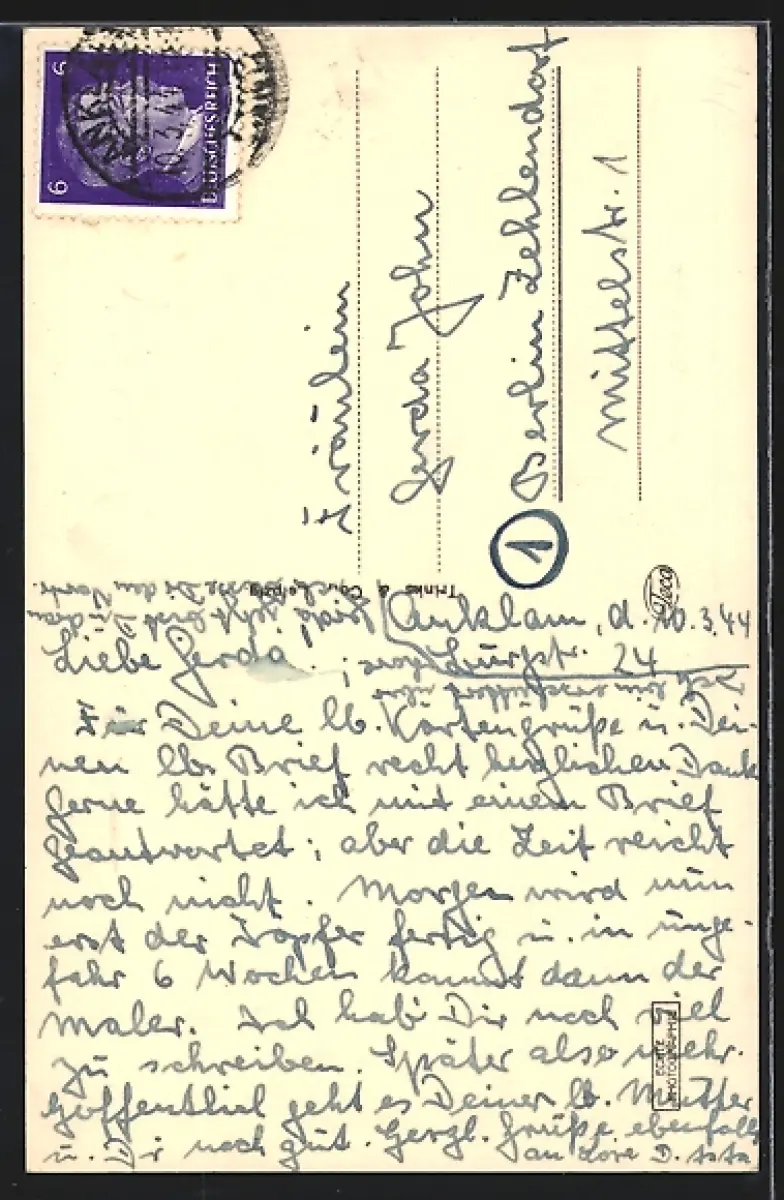 6
6
DEUTSCHES REICH
ANKLAM
10.3.44
Fräulein
Gerda John
1 Berlin Zehlendorf
Mittelstr. 1
Trinks & Co., Leipzig
Teco
Anklam, d. 10.3.44
Burgstr. 24
Liebe Gerda!
Für Deine lb. Kartengrüße u. Dei-
nen lb. Brief recht herzlichen Dank
Gerne hätte ich mit einem Brief
geantwortet; aber die Zeit reicht
noch nicht. Morgen wird nun
erst der Töpfer fertig u. in unge-
fähr 6 Wochen kommt dann der
Maler. Ich hab' Dir noch viel
zu schreiben. Später also mehr.
Hoffentlich geht es Deiner lb. Mutter
u. Dir noch gut. Herzl. Grüße ebenfalls
an Lore D.
ECHTE
PHOTOGRAPHIE